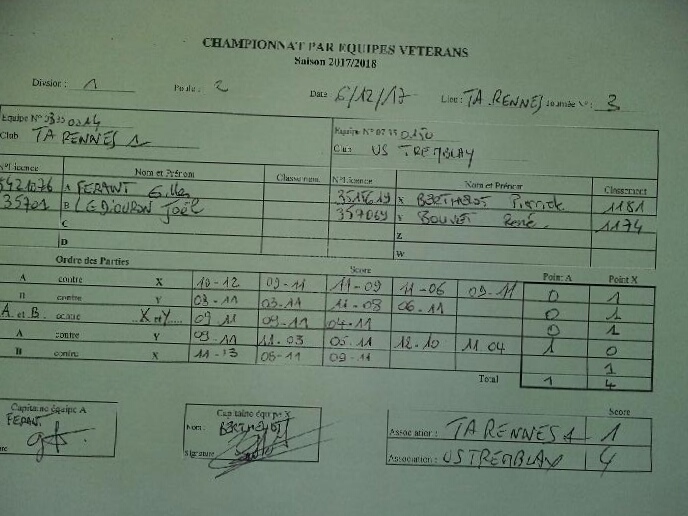 CHAMPIONNAT PAR EQUIPES VETERANS
Saison 2017/2018
Division : 1 Poule : 2 Date 6/12/17 Lieu : TA RENNES Journée N° : 3
Equipe N° 0335 0014 Equipe N° 07 35 0150
Club TA RENNES 1 Club US TREMBLAY
N°Licence Nom et Prénom Classement N°Licence Nom et Prénom Classement
A FERANT Gilles X BERTHELOT Pierrick 1181
35701 B LEDIOURON Joël 357069 Y BOUVET René 1174
C Z
D W
Ordre des Parties Score Point A Point X
A contre X 10-12 09-11 11-09 11-06 09-11 0 1
B contre Y 08-11 03-11 11-08 06-11 0 1
A et B contre X et Y 09 11 09-11 04-11 0 1
A contre Y 09-11 11-03 05-11 12-10 11 04 1 0
B contre X 11-13 08-11 09-11 1
Total 1 4
Capitaine équipe A Capitaine équipe X Score
FERANT Nom : BERTHELOT Association : TA RENNES 1 1
Signature Association : US TREMBLAY 4